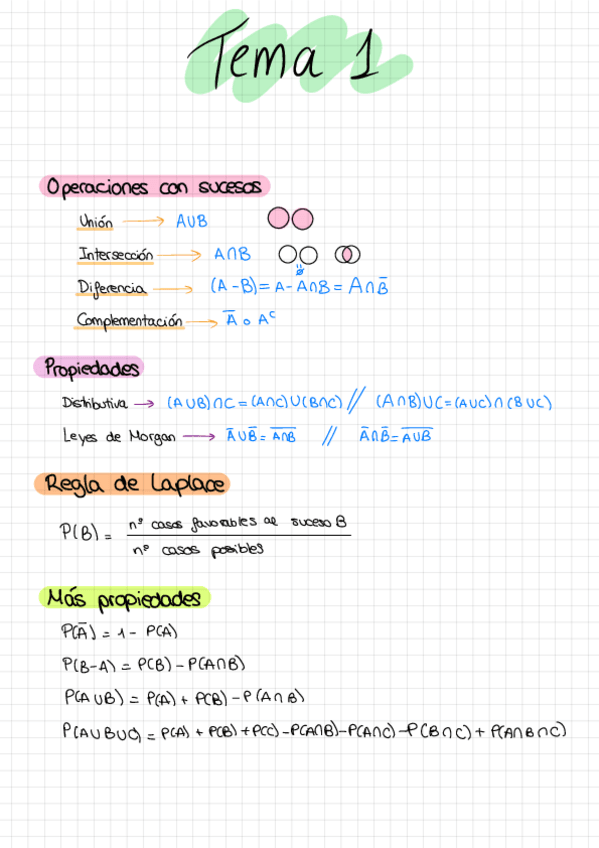 Tema 1
Operaciones con sucesos
Unión → A∪B
Intersección → A∩B
∅
Diferencia → (A-B)= A- A∩B = A∩B̅
Complementación → A̅ o Aᶜ
Propiedades
Distributiva → (A∪B)∩C=(A∩C)∪(B∩C) // (A∩B)∪C=(A∪C)∩(B∪C)
Leyes de Morgan → A̅∪B̅= A̅∩̅B̅ // A̅∩B̅= A̅∪̅B̅
Regla de Laplace
P(B) = nº casos favorables al suceso B
nº casos posibles
Más propiedades
P(A̅) = 1 - P(A)
P(B-A) = P(B) - P(A∩B)
P(A∪B) = P(A) + P(B) - P(A∩B)
P(A∪B∪C) = P(A) + P(B) + P(C) - P(A∩B) - P(A∩C) - P(B∩C) + P(A∩B∩C)